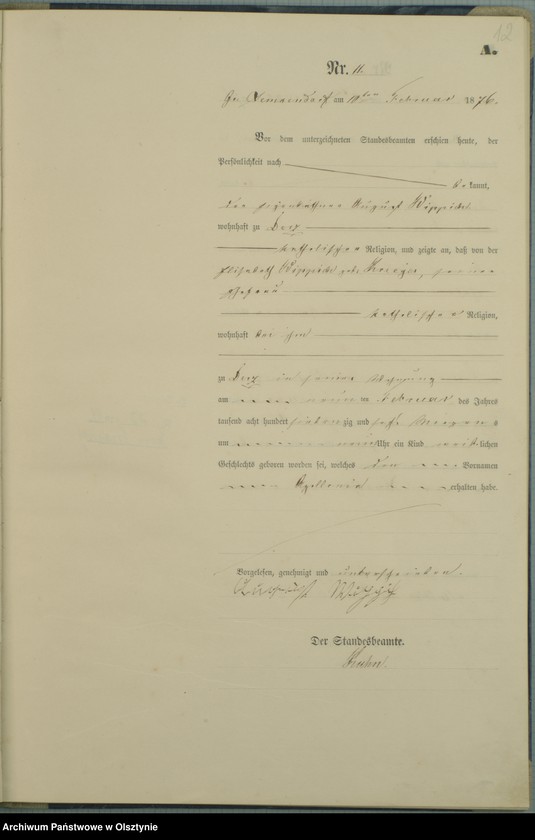 12
A.
Nr. 11.
Gr. am Februar 1876.
Vor dem unterzeichneten Standesbeamten erschien heute, der
Persönlichkeit nach
bekannt,
der August
wohnhaft zu
katholischer Religion, und zeigte an, daß von der
Elisabeth geb. Krieger, seiner
Ehefrau
katholischer Religion,
wohnhaft bei ihm
zu in seiner Wohnung
am neun ten Februar des Jahres
tausend acht hundert siebenzig und sechs Morgens
um neun Uhr ein Kind weiblichen
Geschlechts geboren worden sei, welches den Vornamen
erhalten habe.
Vorgelesen, genehmigt und unterschrieben.
August
Der Standesbeamte.
Archiwum Państwowe w Olsztynie